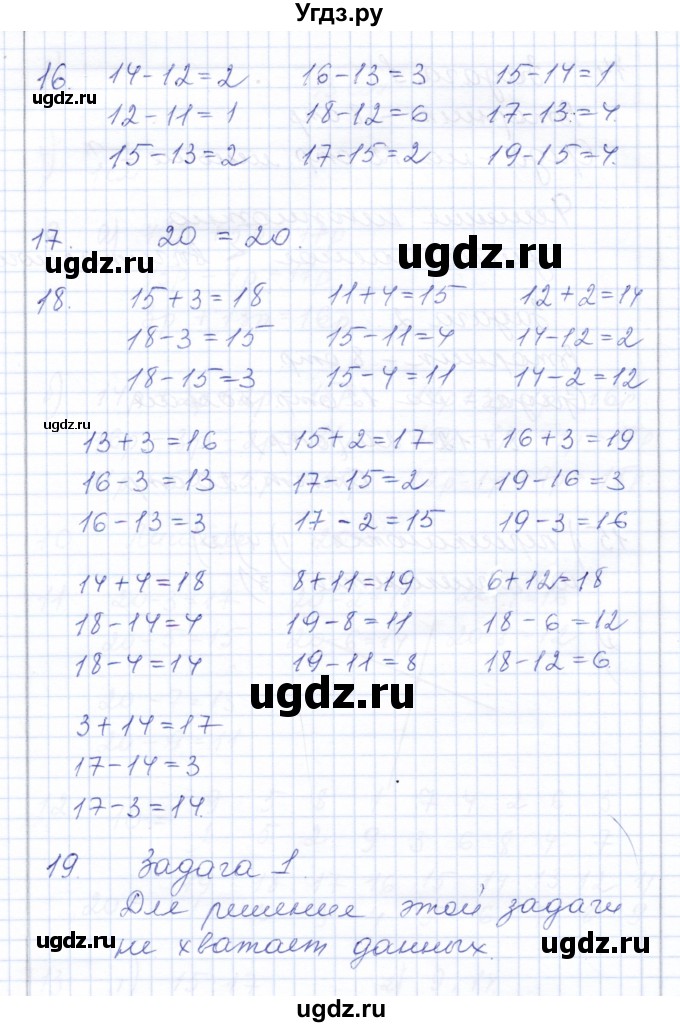 Угдз.ру
16 14-12=2. 16-13=3 15-14=1
ugdz.ru
12-11=1 18-12=6 17-13=4.
15-13=2 17-15=2 19-15=4.
17. 20 = 20.
ugdz.ru ugdz.ru
18. 15+3=18 11+4=15 12+2=14
18-3=15 15-11=4 14-12=2
18-15=3 15-4=11 14-2=12
ugdz.ru
13+3=16 15+2=17 16+3=19
16-3=13 17-15=2 19-16=3
16-13=3 17-2=15 19-3=16
14+4=18 8+11=19 6+12=18
18-14=4 19-8=11 18-6=12
18-4=14 19-11=8 18-12=6.
ugdz.ru
3+14=17
17-14=3
17-3=14.
19. Задача 1.
Для решения этой задачи
ugdz.ru
не хватает данных.
ugdz.ru
ugdz.ru